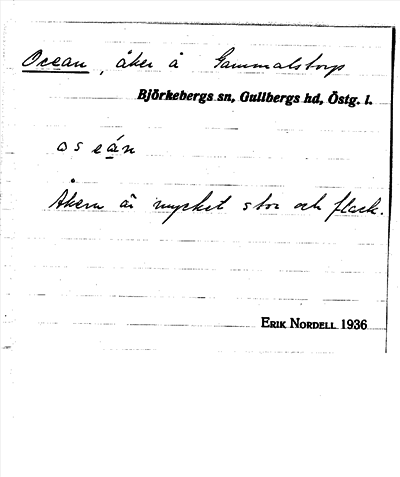 Ocean, åker å Gammalstorp
Björkebergs sn, Gullbergs hd, Östg. l.
oseán
Åkern är mycket stor och flack.
ERIK NORDELL 1936